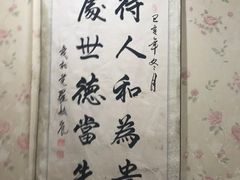 己亥年冬月
待人和為貴
處世德當先